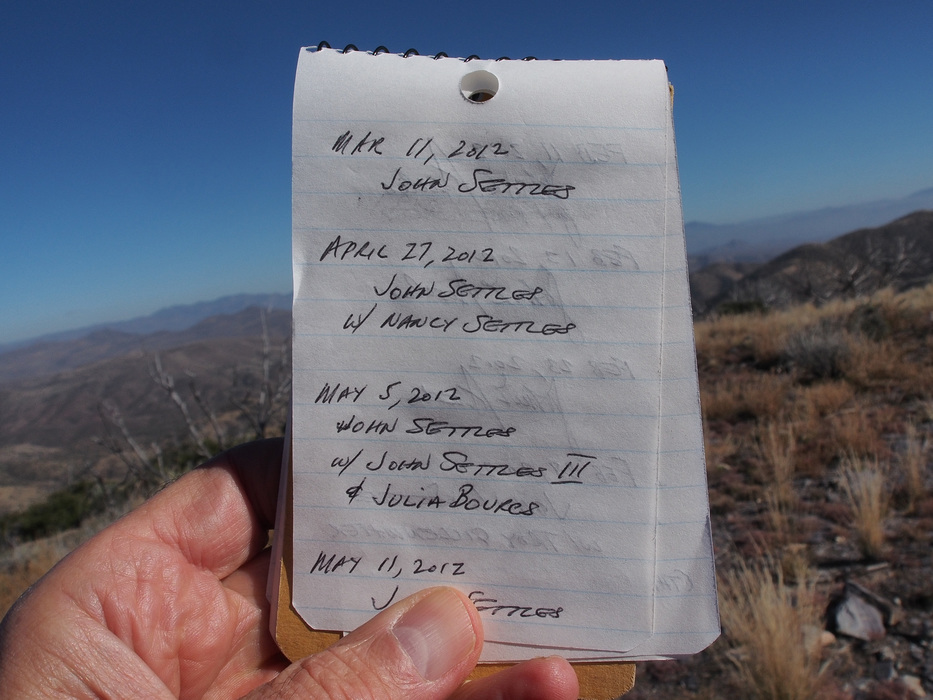 MAR 11, 2012
JOHN SETTLES
APRIL 27, 2012
JOHN SETTLES
W/ NANCY SETTLES
MAY 5, 2012
JOHN SETTLES
W/ JOHN SETTLES III
& JULIA BOURGS
MAY 11, 2012
SETTLES